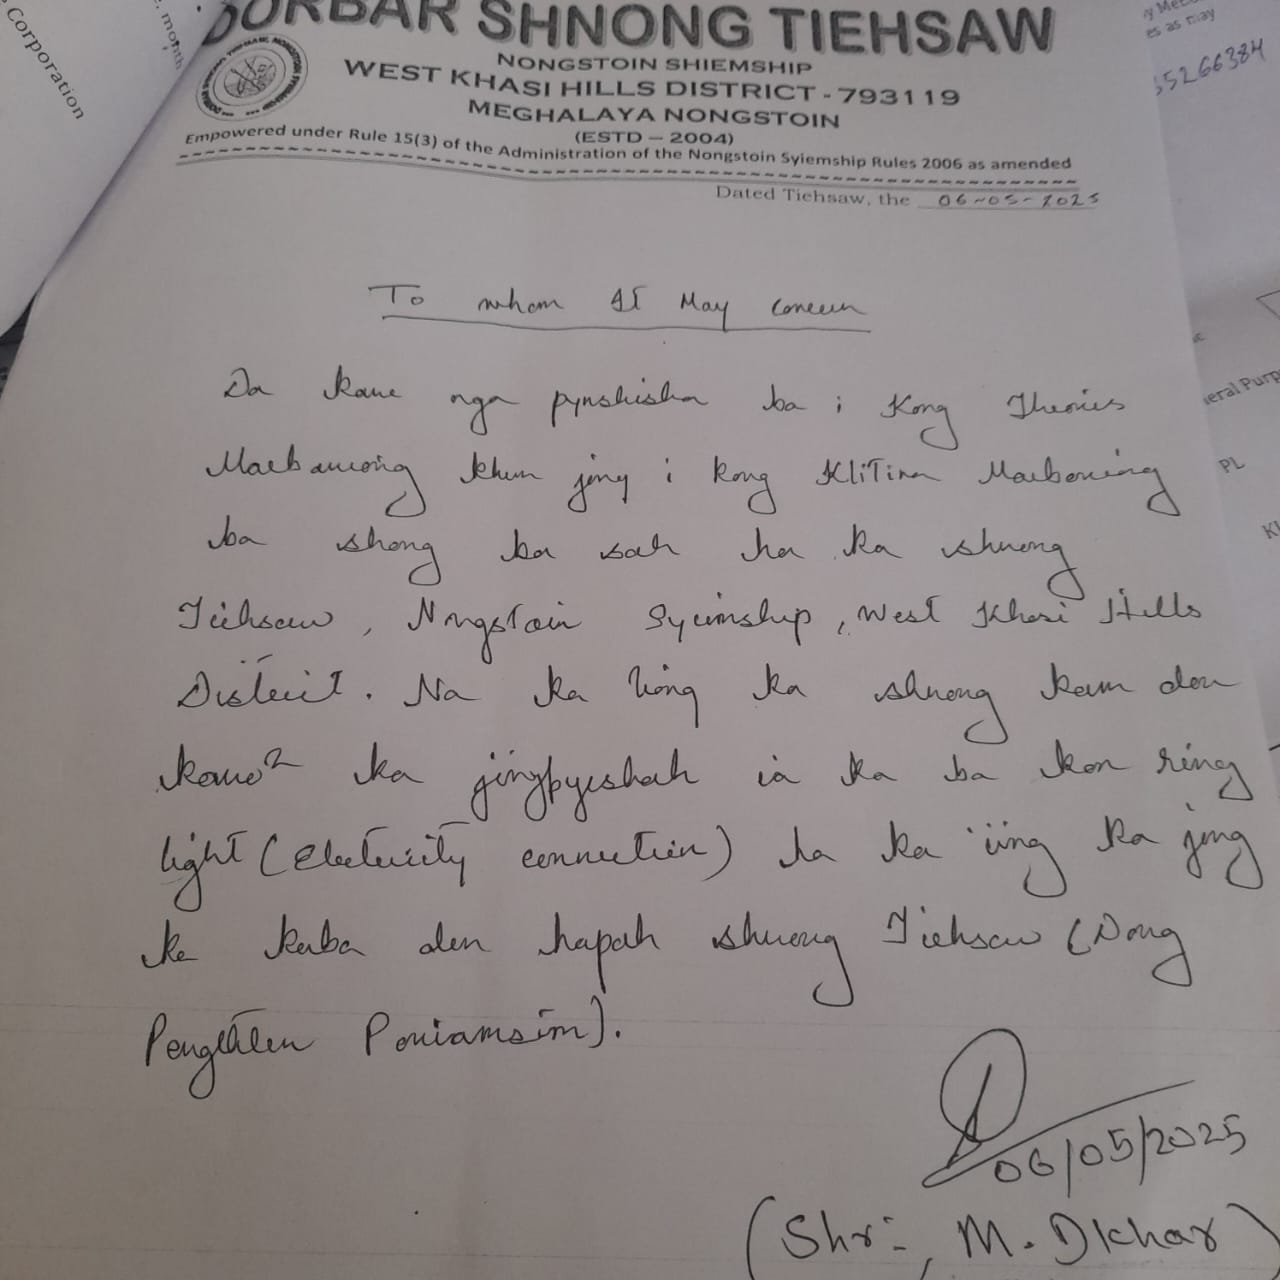 Corporation
, month
y Me
es as may
5266384
DORBAR SHNONG TIEHSAW
NONGSTOIN SHIEMSHIP
WEST KHASI HILLS DISTRICT - 793119
MEGHALAYA NONGSTOIN
(ESTD - 2004)
Empowered under Rule 15(3) of the Administration of the Nongstoin Syiemship Rules 2006 as amended
Dated Tiehsaw, the 06-05-2025
To whom It May Concern
Da kane nga pynshisha ba i Kong
khun jong i kong Klitina
ba shong ba sah ha ka shnong
Tiehsaw, Nongstoin Syiemship, West Khasi Hills
District. Na ka liang ka shnong kam don
kano2 ka jingpyrshah ia ka ba kan ring
light (Electricity connection) ha ka ïing ka jong
ka kaba don hapoh shnong Tiehsaw (Dong
06/05/2025
(Shri:, M. Dkhar)
eral Purp
PL